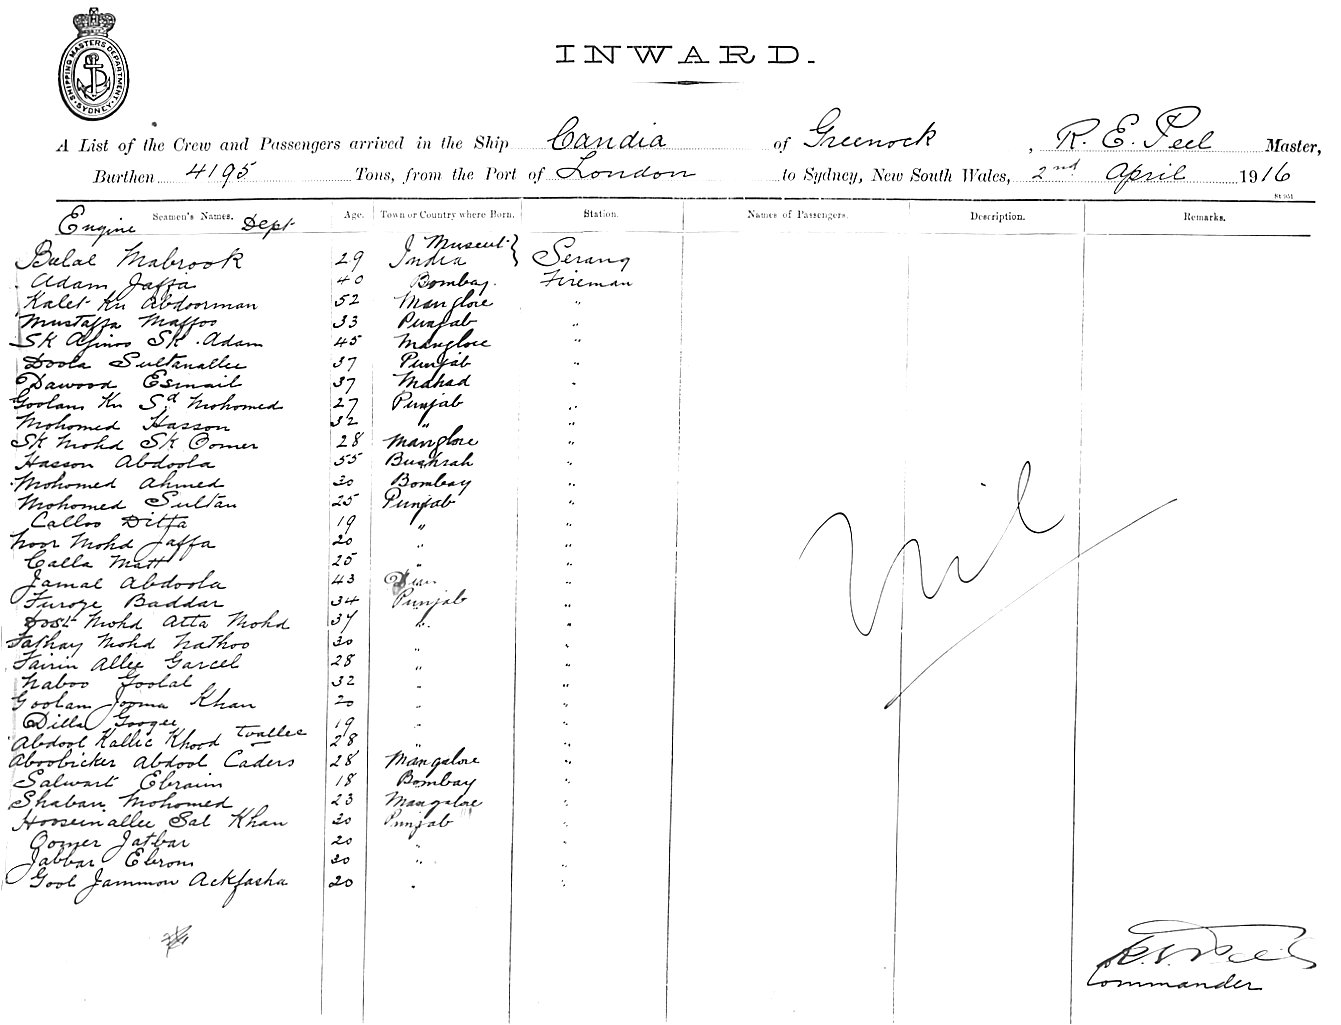 SHIPPING MASTERS DEPARTMENT. SYDNEY
INWARD.
A List of the Crew and Passengers arrived in the Ship Candia of Greenock, R. E. Peel Master,
Burthen 4195 Tons, from the Port of London to Sydney, New South Wales, 2nd April 1916
St 951
Seamen's Names. Age. Town or Country where Born. Station. Names of Passengers. Description. Remarks.
Engine Dept
Bulal Mabrook 29 Muscut India Serang
Adam Jaffa 40 Bombay. Fireman
Kalet Kn Abdoorman 52 Manglore "
Mustaffa Maffoo 33 Punjab "
SK SK. Adam 45 Manglore "
Doola Sultanallee 37 Punjab "
Dawood Esmail 37 Mahad "
Goolam Kn Sd Mohomed 27 Punjab "
Mohomed Hasson 32 " "
SK Mohd SK Oomer 28 Manglore "
Hasson Abdoola 55 Bushrah "
Mohomed Ahmed 30 Bombay "
Mohomed Sultan 25 Punjab "
Calloo Ditta 19 " "
Noor Mohd Jaffa 20 " "
Calla Matt 25 " "
Jamal Abdoola 43 "
Furoze Baddar 34 Punjab "
Dost Mohd Atta Mohd 37 " "
Fathay Mohd Nathoo 30 " "
Fairin Allee Garcel 28 " "
Naboo Goolal 32 " "
Goolam Jooma Khan 20 " "
Ditta Googee 19 " "
Abdool Kallic Khood Tvallee 28 " "
Aboobicker Abdool Caders 28 Mangalore "
Salwart Ebraim 18 Bombay "
Shaban Mohomed 23 Mangalore "
Hooseinallee Sal Khan 30 Punjab "
Oomer Jatbar 20 " "
Jabbar Ebrom 30 " "
Gool Jammon Ackfasha 20 " "
Nil
R. E. Peel
Commander